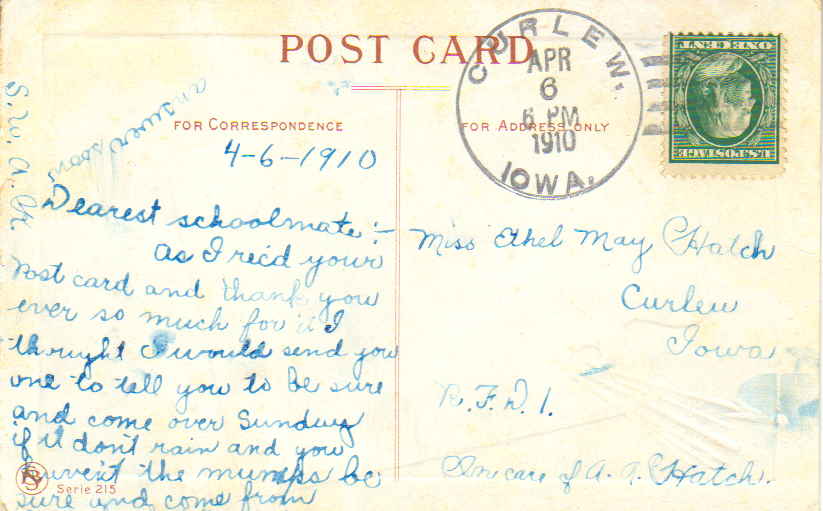 POST CARD
CURLEW.
APR
6
6 PM
1910
IOWA.
ONE CENT
U.S. POSTAGE
FOR CORRESPONDENCE
FOR ADDRESS ONLY
answer soon
4-6-1910
Dearest schoolmate:-
As I rec'd your
Post card and thank you
ever so much for it I
thought I would send you
one to tell you to be sure
and come over Sunday
if it dont rain and you
havent the mumps be
sure and come from
S. W. A. H.
Miss Ethel May Hatch
Curlew
Iowa
R.F.D. 1.
In care of A. A. Hatch.
Serie 215